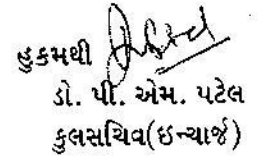 હુકમથી
ડો. પી. એમ. પટેલ
કુલસચિવ(ઇન્ચાર્જ)